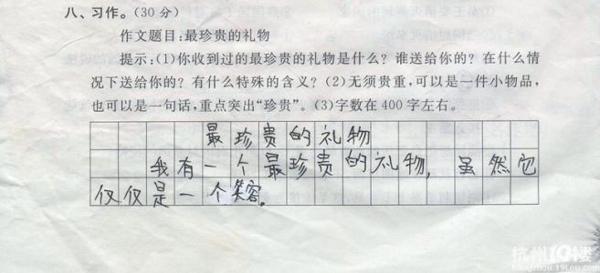 八、习作。(30分)
作文题目:最珍贵的礼物
提示:(1)你收到过的最珍贵的礼物是什么？谁送给你的？在什么情
况下送给你的？有什么特殊的含义？(2)无须贵重,可以是一件小物品,
也可以是一句话,重点突出“珍贵”。(3)字数在400字左右。
最珍贵的礼物
我有一个最珍贵的礼物,虽然它
仅仅是一个笑容.
杭州19楼